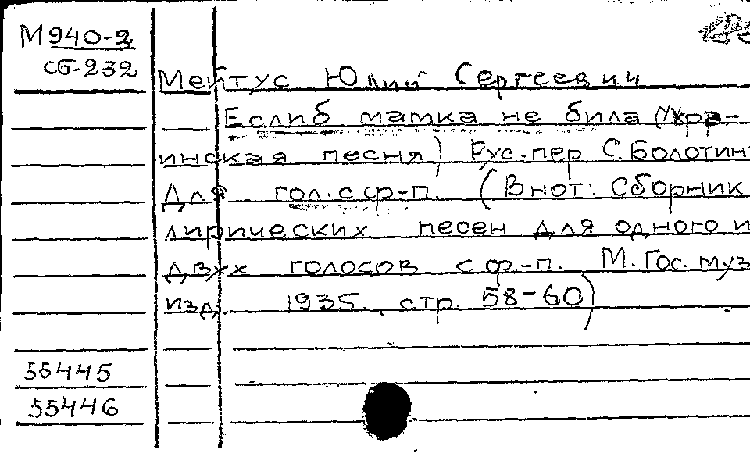 М940-2
сб-232
Мейтус Юлий Сергеевич
Еслиб матка не била (Укра-
инская песня) Рус. пер С. Болотин
Для гол. с ф-п. (В нот: Сборник
лирических песен для одного и
двух голосов с ф-п. М. Гос. муз
изд. 1935. стр. 58-60)
55445
55446